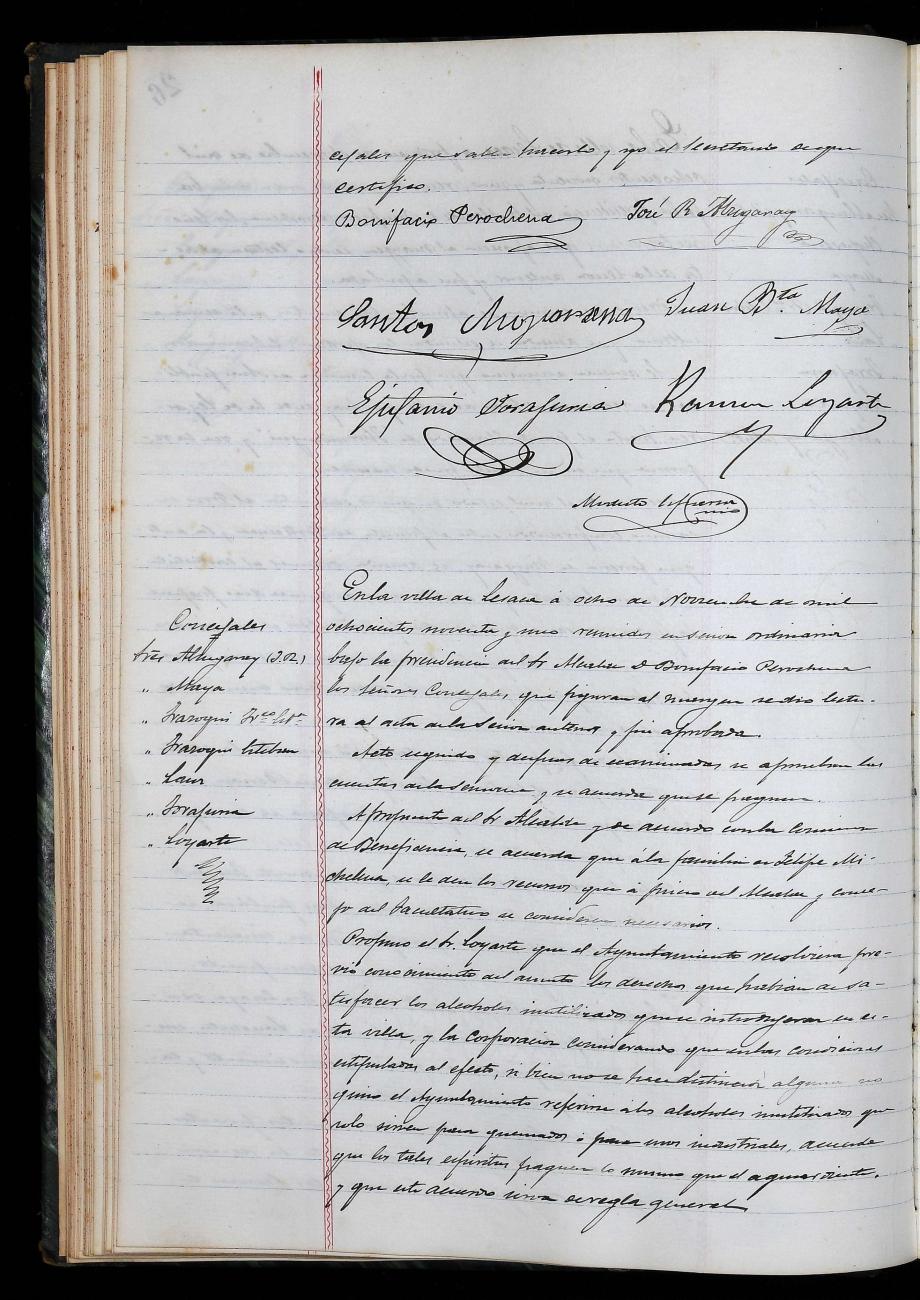 cejales que saben hacerlo y yo el Secretario de que
certifico.
Bonifacio Perochena José R Alzuganay
Santos Juan Bta. Maya
Epifanio Iorafuria Ramon Loyarte
Modesto
En la villa de Lesaca á ocho de Noviembre de mil
ochocientos noventa y uno reunidos en sesion ordinaria
bajo la presidencia del Sr Alcalde D Bonifacio Perochena
los Señores Concejales que figuran al margen se dio lectu-
ra al acta de la Sesion anterior y fué aprobada.
Acto seguido y despues de examinadas se aprueban las
cuentas de la Semana y se acuerda que se paguen.
A propuesta del Sr Alcalde y de acuerdo con la Comision
de Beneficencia, se acuerda que á la familia de Felipe Mi-
chelena, se le den los recursos que á juicio del Alcalde y conse-
jo del Facultativo se consideren necesarios.
Propuso el Sr. Loyarte que el Ayuntamiento resolviera pre-
vio conocimiento del asunto los derechos que habian de sa-
tisfacer los alcoholes inutilizados que se introdujeran en es-
ta villa, y la corporacion considerando que en las condiciones
estipuladas al efecto, si bien no se hace distincion alguna no
quiso el Ayuntamiento referirse á los alcoholes inutilizados que
solo sirven para quemados ó para usos industriales, acuerda
que los tales espiritus paguen lo mismo que el aguardiente.
y que este acuerdo sirva de regla general
Concejales
Sres Alzuganay (J.R.)
" Maya
" Irazoqui Frco
" Irazoqui Esteban
" Iorafuria
" Loyarte